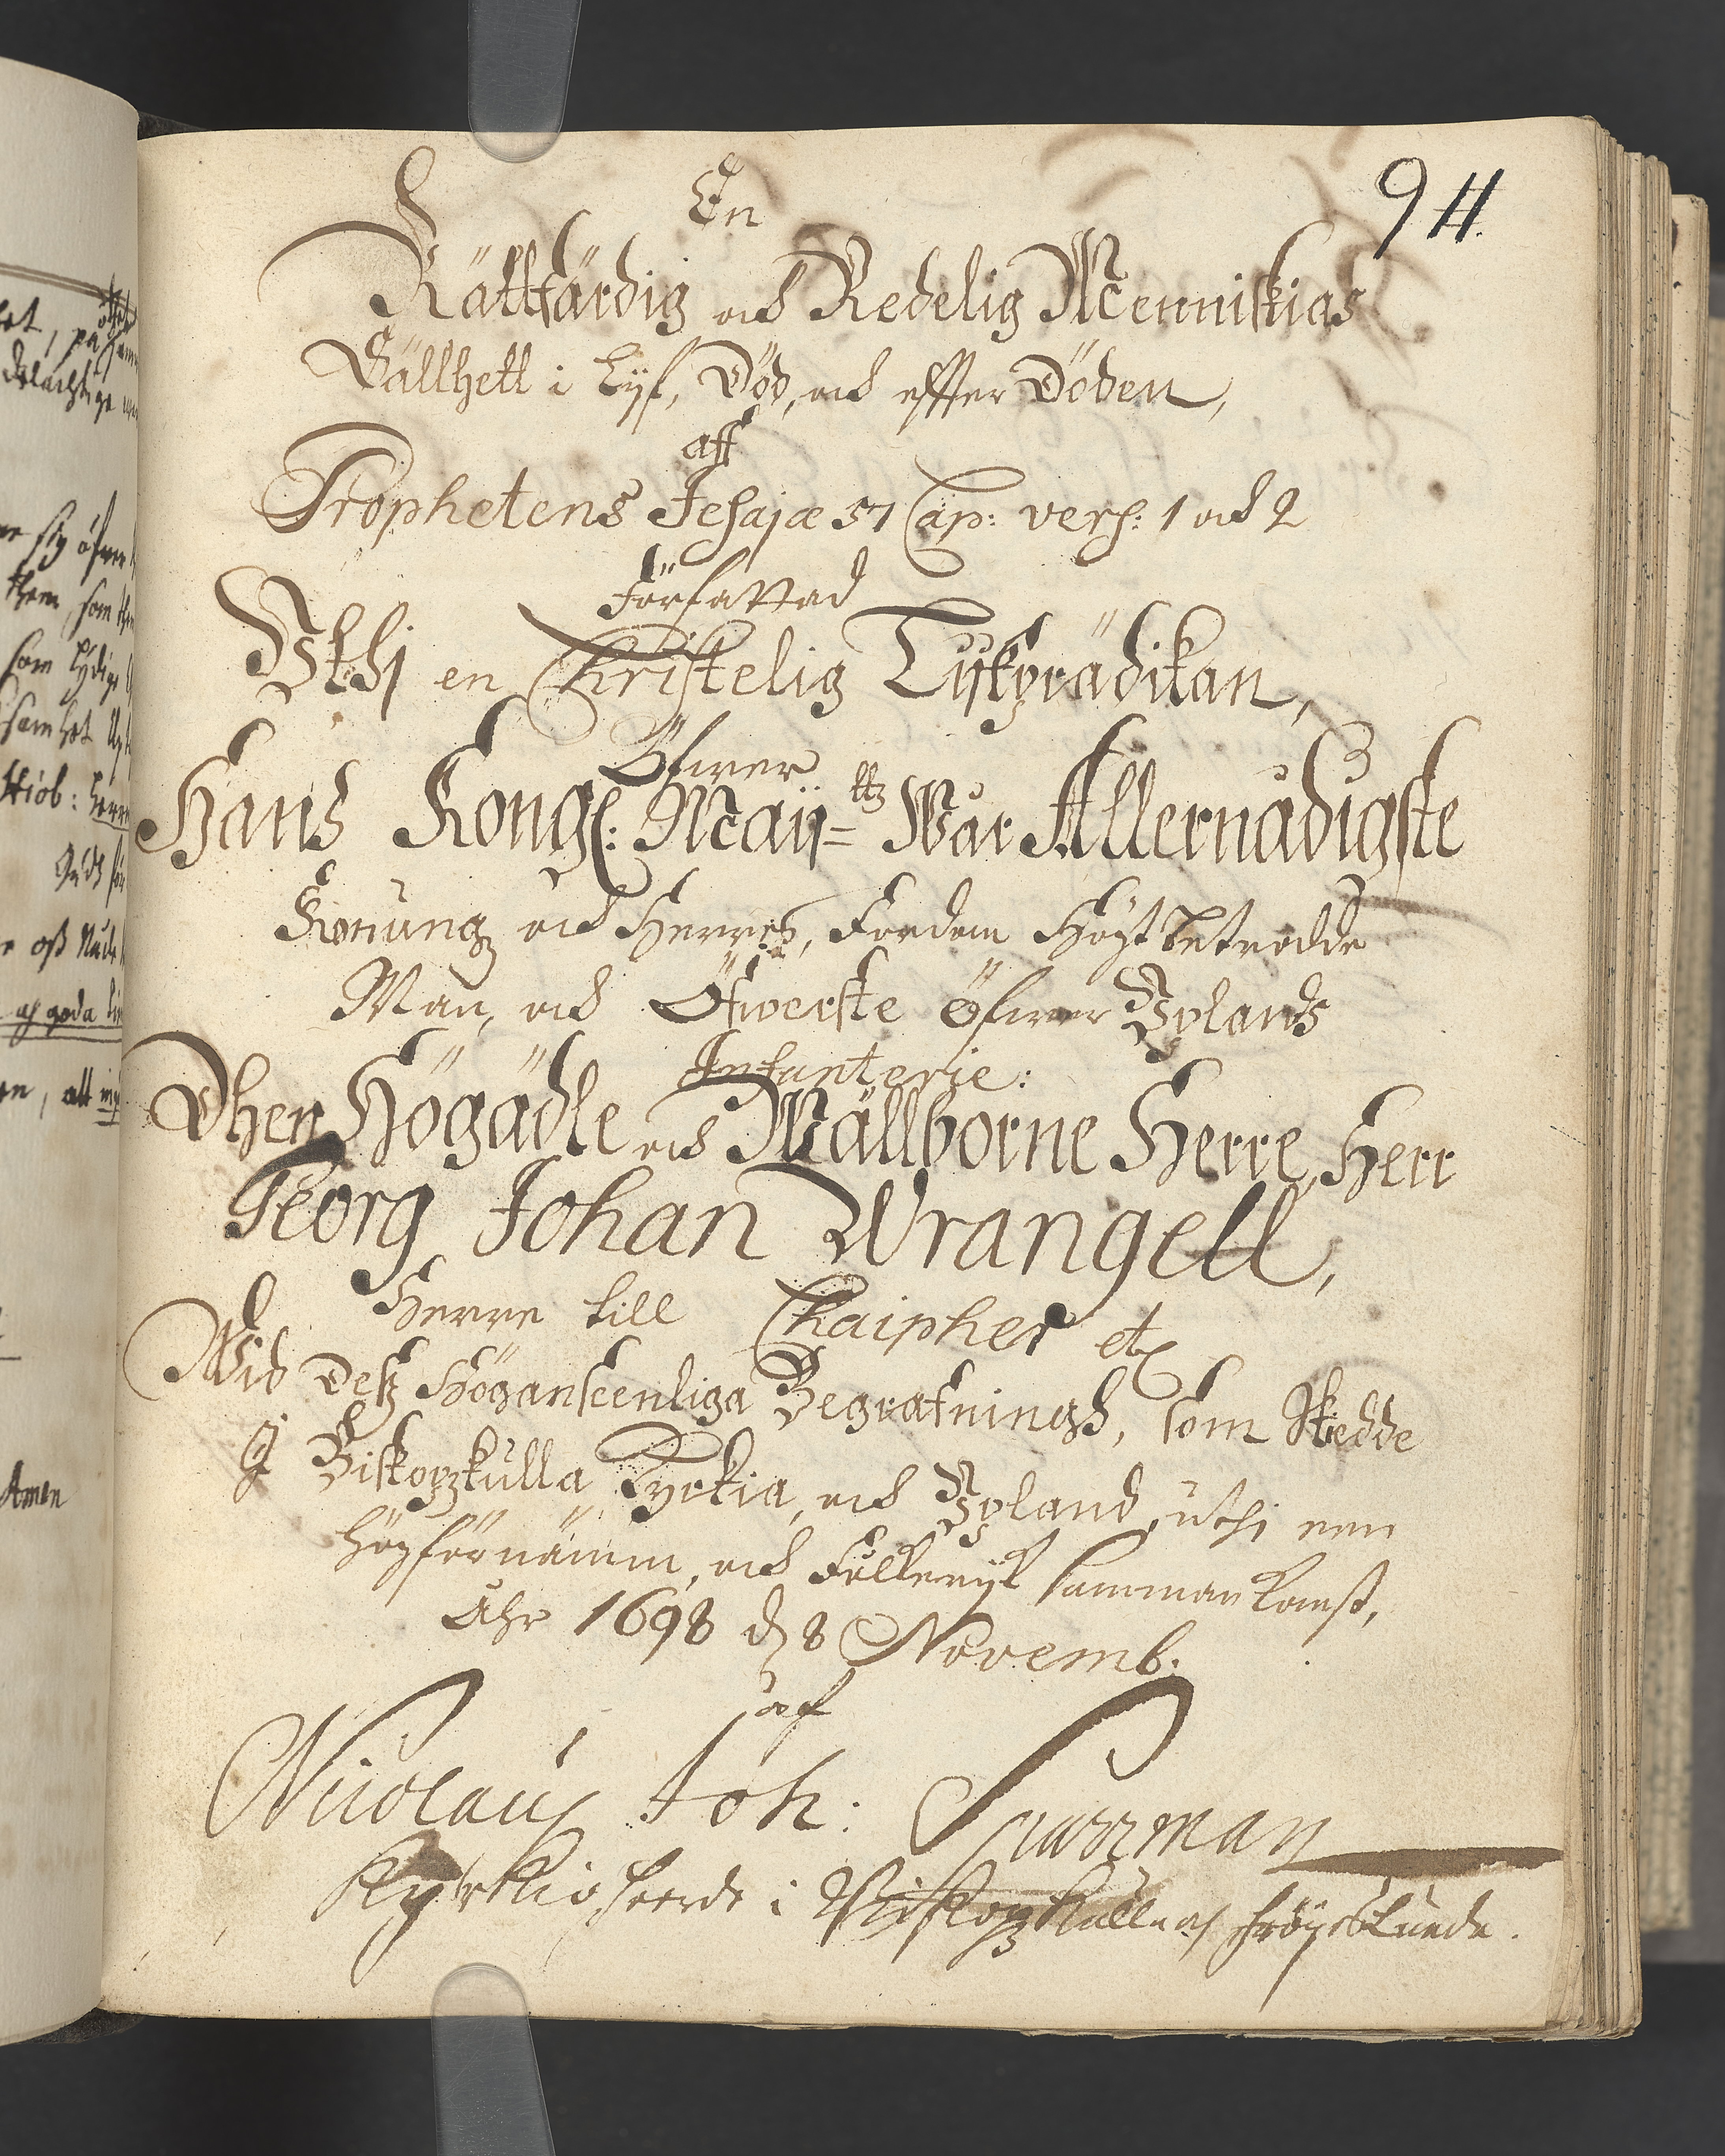 94.
En
Rättfärdig och Redelig Menniskias
Sällhett i Lyf, Död, och effter Döden,
aff
Prophetens Jesajæ 57 Cap: vers: 1 och 2
Författad
Uthj en Christelig Lijkprädikan,
Öfwer
Hans Kongl: Maij=ttz Wår Allernådigste
Konung och Herres, Fordom Högt betrodde
Man, och Öfwerste öfwer Uplands
Infanterie:
Dhen Högädle och Wällborne Herre, Herr
Georg Johan Wrangell,
Herre till Chaipher etc
Wid Desz Höganseenliga Begrafningh, som Skedde
J Biskopzkulla Kyrkia, och Upland, uthi een
högförnämm, och Folkerijk sammankomst,
Åhr 1698 d 8 Novemb:
af
Nicolaus Joh:
Kyrkioheerde i Biskopzkulla och Fröszlunda.
Amen